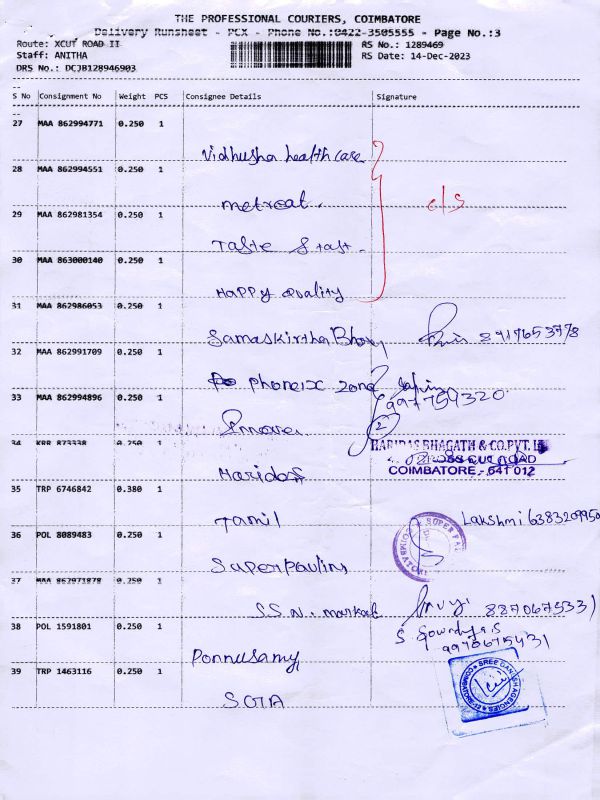 THE PROFESSIONAL COURIERS, COIMBATORE
Delivery Runsheet - PCX - Phone No.:0422-3505555 - Page No.:3
Route: XCUT ROAD II RS No.: 1289469
Staff: ANITHA RS Date: 14-Dec-2023
DRS No.: DCJB128946903
S No Consignment No Weight PCS Consignee Details Signature
27 MAA 862994771 0.250 1
Vidhusha health care
28 MAA 862994551 0.250 1
metreat. c/s
29 MAA 862981354 0.250 1
Taste & tast.
30 MAA 863000140 0.250 1
Happy Quality
31 MAA 862986053 0.250 1
Samaskirtha Bhavy 8917653778
32 MAA 862991709 0.250 1
phoneix zone
33 MAA 862994896 0.250 1 997759320
Innover 2
34 KRR 873338 0.250 1 HARIDAS BHAGATH & CO.PVT.
CUT ROAD
Haridas COIMBATORE - 641 012
35 TRP 6746842 0.380 1
Tamil Lakshmi 6383209950
36 POL 8089483 0.250 1 SUPER
Super Paulins
37 MAA 862971878 0.250 1
S.S.N. market 8870675331
38 POL 1591801 0.250 1 S Gowdya.s
9976675431
Ponnusamy
39 TRP 1463116 0.250 1 SREE GANESH AGENCIES
SOTA